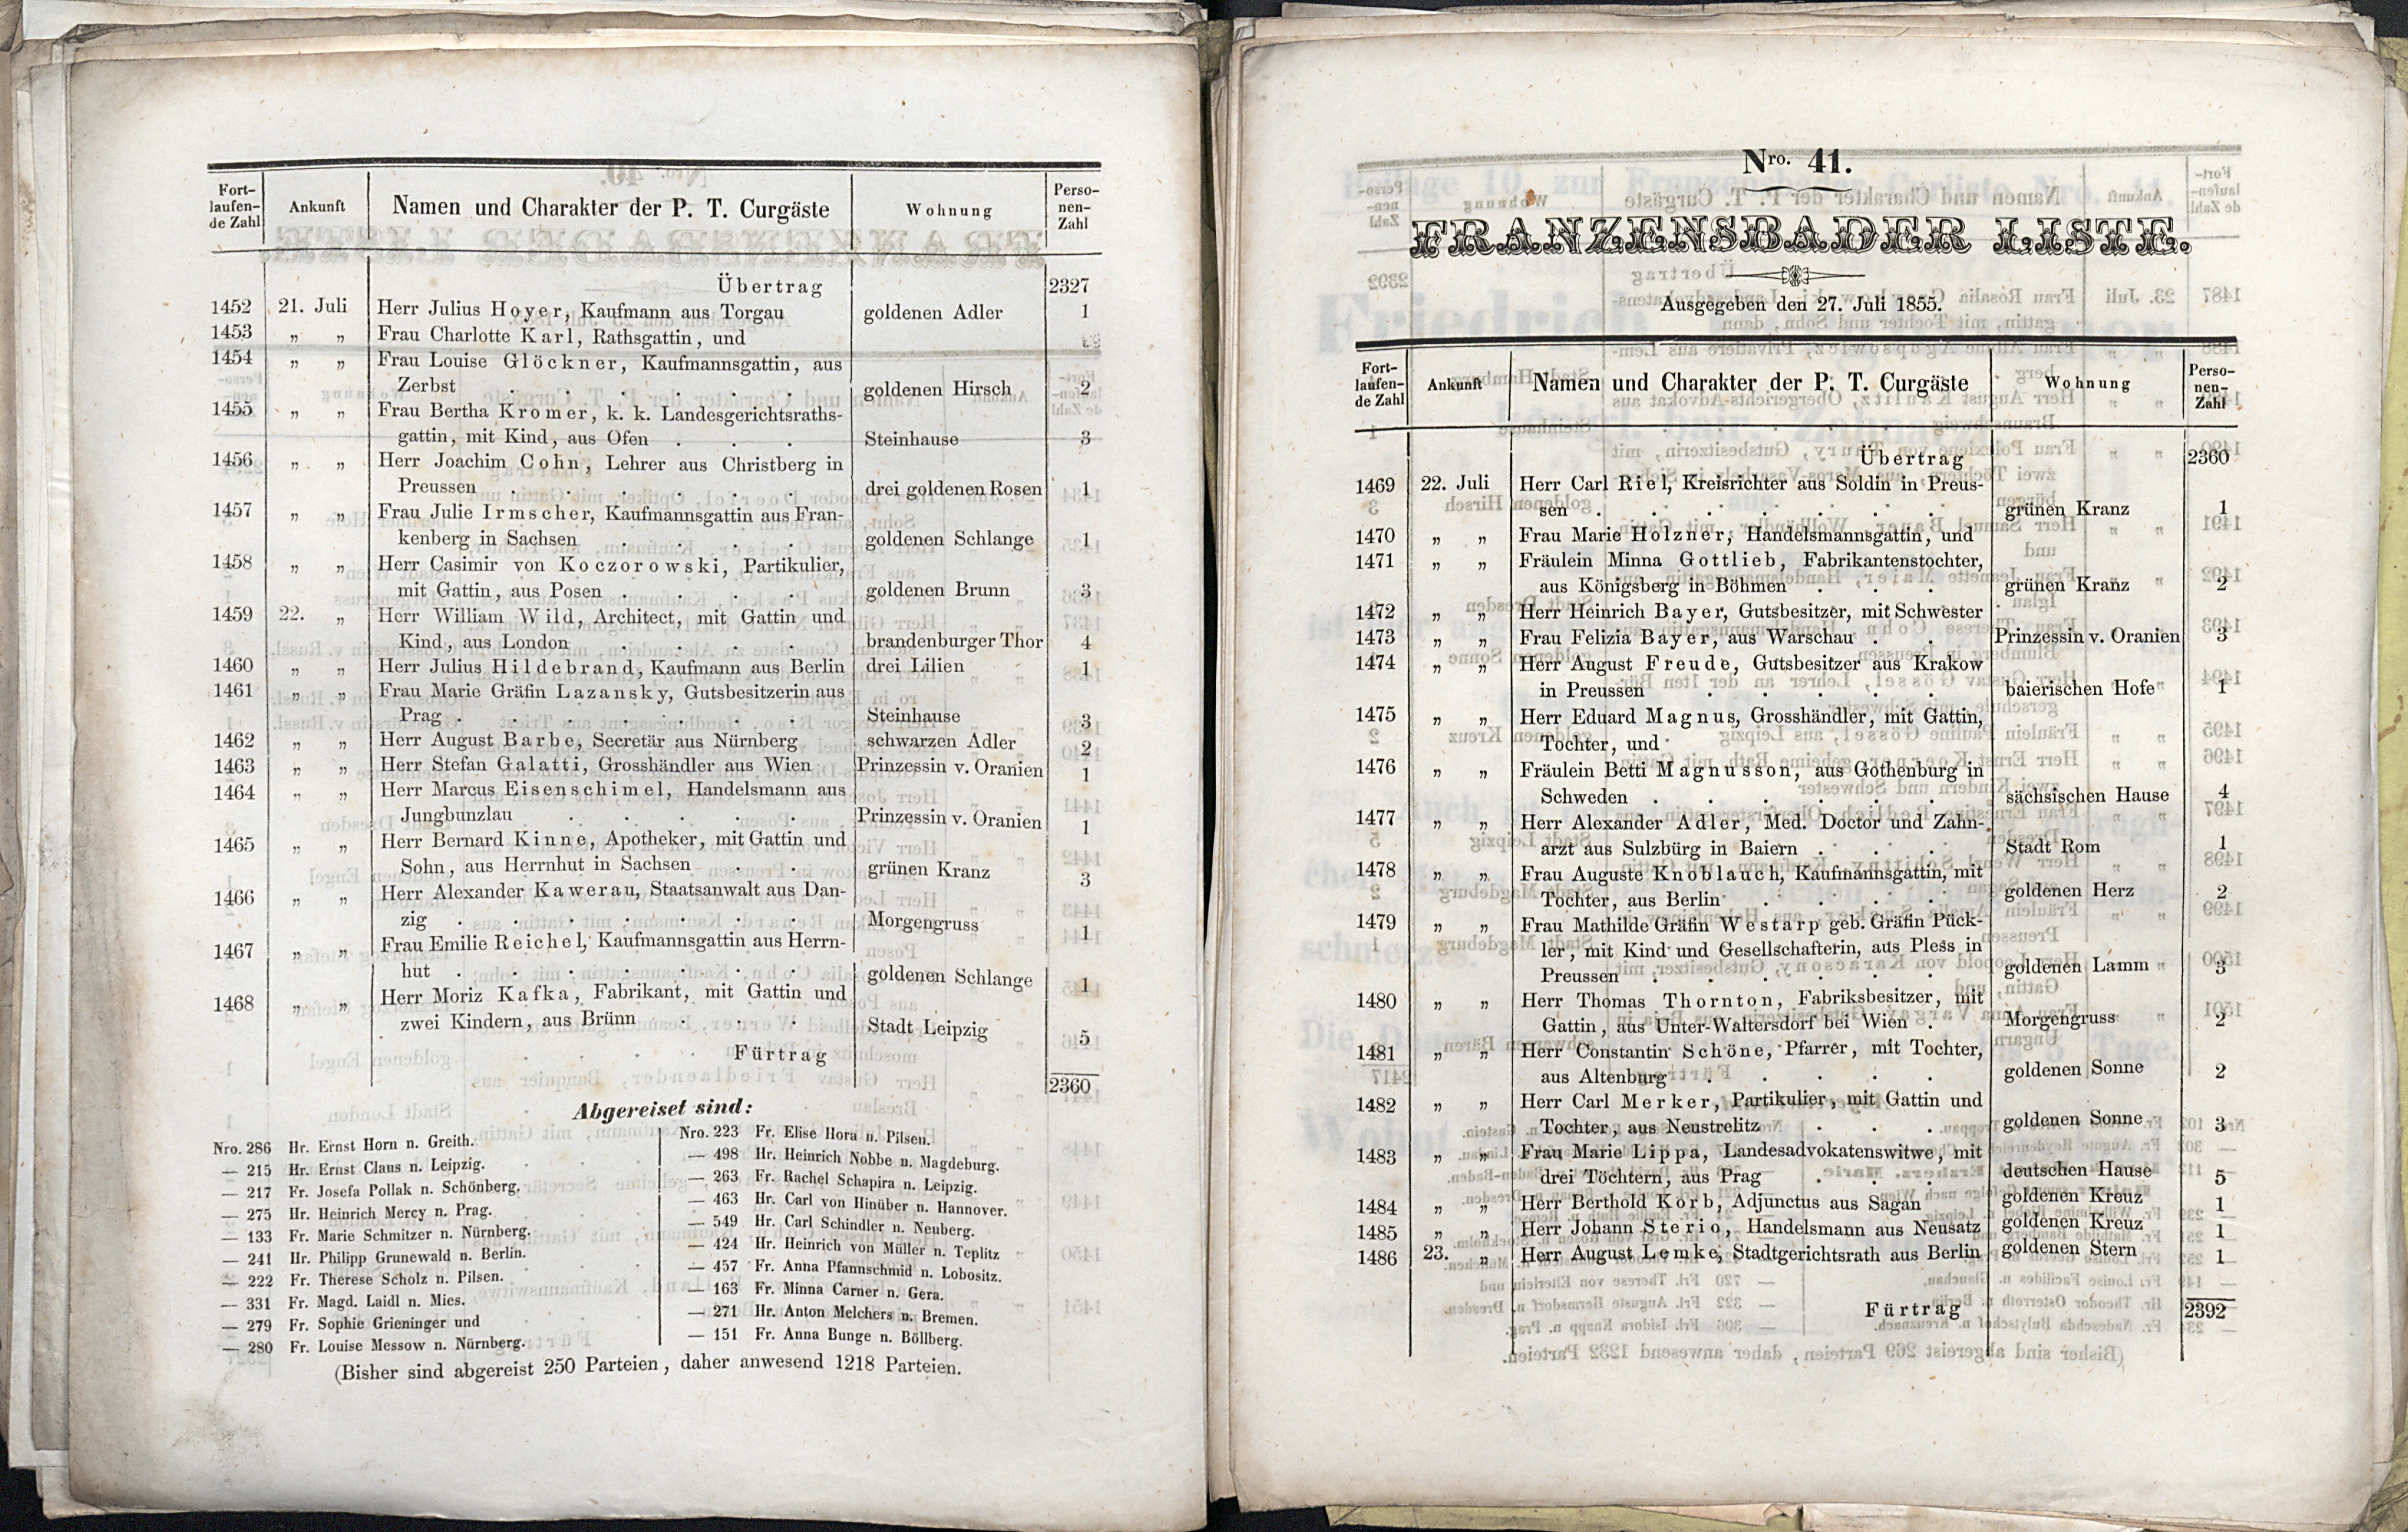 Fort-
laufen-
de Zahl
Ankunft
Namen und Charakter der P. T. Curgäste
Wohnung
Perso-
nen-
Zahl
Übertrag 2327
1452 21. Juli Herr Julius Hoyer, Kaufmann aus Torgau goldenen Adler 1
1453 „ „ Frau Charlotte Karl, Rathsgattin, und
1454 „ „ Frau Louise Glöckner, Kaufmannsgattin, aus
Zerbst . . . . . . goldenen Hirsch 2
1455 „ „ Frau Bertha Kromer, k. k. Landesgerichtsraths-
gattin, mit Kind, aus Ofen . . . Steinhause 3
1456 „ „ Herr Joachim Cohn, Lehrer aus Christberg in
Preussen . . . . . . drei goldenen Rosen 1
1457 „ „ Frau Julie Irmscher, Kaufmannsgattin aus Fran-
kenberg in Sachsen . . . . goldenen Schlange 1
1458 „ „ Herr Casimir von Koczorowski, Partikulier,
mit Gattin, aus Posen . . . . goldenen Brunn 3
1459 22. „ Herr William Wild, Architect, mit Gattin und
Kind, aus London . . . . brandenburger Thor 4
1460 „ „ Herr Julius Hildebrand, Kaufmann aus Berlin drei Lilien 1
1461 „ „ Frau Marie Gräfin Lazansky, Gutsbesitzerin aus
Prag . . . . . . . Steinhause 3
1462 „ „ Herr August Barbe, Secretär aus Nürnberg schwarzen Adler 2
1463 „ „ Herr Stefan Galatti, Grosshändler aus Wien Prinzessin v. Oranien 1
1464 „ „ Herr Marcus Eisenschimel, Handelsmann aus
Jungbunzlau . . . . . Prinzessin v. Oranien 1
1465 „ „ Herr Bernard Kinne, Apotheker, mit Gattin und
Sohn, aus Herrnhut in Sachsen . . grünen Kranz 3
1466 „ „ Herr Alexander Kawerau, Staatsanwalt aus Dan-
zig . . . . . . . Morgengruss 1
1467 „ „ Frau Emilie Reichel, Kaufmannsgattin aus Herrn-
hut . . . . . . . goldenen Schlange 1
1468 „ „ Herr Moriz Kafka, Fabrikant, mit Gattin und
zwei Kindern, aus Brünn . . . Stadt Leipzig 5
Fürtrag 2360
Abgereiset sind:
Nro. 286 Hr. Ernst Horn n. Greith.
— 215 Hr. Ernst Claus n. Leipzig.
— 217 Fr. Josefa Pollak n. Schönberg.
— 275 Hr. Heinrich Mercy n. Prag.
— 133 Fr. Marie Schmitzer n. Nürnberg.
— 241 Hr. Philipp Grunewald n. Berlin.
— 222 Fr. Therese Scholz n. Pilsen.
— 331 Fr. Magd. Laidl n. Mies.
— 279 Fr. Sophie Grieninger und
— 280 Fr. Louise Messow n. Nürnberg.
Nro. 223 Fr. Elise Hora n. Pilsen.
— 498 Hr. Heinrich Nobbe n. Magdeburg.
— 263 Fr. Rachel Schapira n. Leipzig.
— 463 Hr. Carl von Hinüber n. Hannover.
— 549 Hr. Carl Schindler n. Neuberg.
— 424 Hr. Heinrich von Müller n. Teplitz
— 457 Fr. Anna Pfannschmid n. Lobositz.
— 163 Fr. Minna Carner n. Gera.
— 271 Hr. Anton Melchers n. Bremen.
— 151 Fr. Anna Bunge n. Böllberg.
(Bisher sind abgereist 250 Parteien, daher anwesend 1218 Parteien.
Nro. 41.
FRANZENSBADER LISTE.
Ausgegeben den 27. Juli 1855.
Fort-
laufen-
de Zahl
Ankunft
Namen und Charakter der P. T. Curgäste
Wohnung
Perso-
nen-
Zahl
Übertrag 2360
1469 22. Juli Herr Carl Riel, Kreisrichter aus Soldin in Preus-
sen . . . . . . . grünen Kranz 1
1470 „ „ Frau Marie Holzner, Handelsmannsgattin, und
1471 „ „ Fräulein Minna Gottlieb, Fabrikantenstochter,
aus Königsberg in Böhmen . . . grünen Kranz 2
1472 „ „ Herr Heinrich Bayer, Gutsbesitzer, mit Schwester
1473 „ „ Frau Felizia Bayer, aus Warschau . . Prinzessin v. Oranien 3
1474 „ „ Herr August Freude, Gutsbesitzer aus Krakow
in Preussen . . . . . baierischen Hofe 1
1475 „ „ Herr Eduard Magnus, Grosshändler, mit Gattin,
Tochter, und
1476 „ „ Fräulein Betti Magnusson, aus Gothenburg in
Schweden . . . . . . sächsischen Hause 4
1477 „ „ Herr Alexander Adler, Med. Doctor und Zahn-
arzt aus Sulzbürg in Baiern . . . Stadt Rom 1
1478 „ „ Frau Auguste Knoblauch, Kaufmannsgattin, mit
Tochter, aus Berlin . . . . goldenen Herz 2
1479 „ „ Frau Mathilde Gräfin Westarp geb. Gräfin Pück-
ler, mit Kind und Gesellschafterin, aus Pless in
Preussen . . . . . . goldenen Lamm 3
1480 „ „ Herr Thomas Thornton, Fabriksbesitzer, mit
Gattin, aus Unter-Waltersdorf bei Wien . Morgengruss 2
1481 „ „ Herr Constantin Schöne, Pfarrer, mit Tochter,
aus Altenburg . . . . . goldenen Sonne 2
1482 „ „ Herr Carl Merker, Partikulier, mit Gattin und
Tochter, aus Neustrelitz . . . goldenen Sonne 3
1483 „ „ Frau Marie Lippa, Landesadvokatenswitwe, mit
drei Töchtern, aus Prag . . . deutschen Hause 5
1484 „ „ Herr Berthold Korb, Adjunctus aus Sagan goldenen Kreuz 1
1485 „ „ Herr Johann Sterio, Handelsmann aus Neusatz goldenen Kreuz 1
1486 23. „ Herr August Lemke, Stadtgerichtsrath aus Berlin goldenen Stern 1
Fürtrag 2392